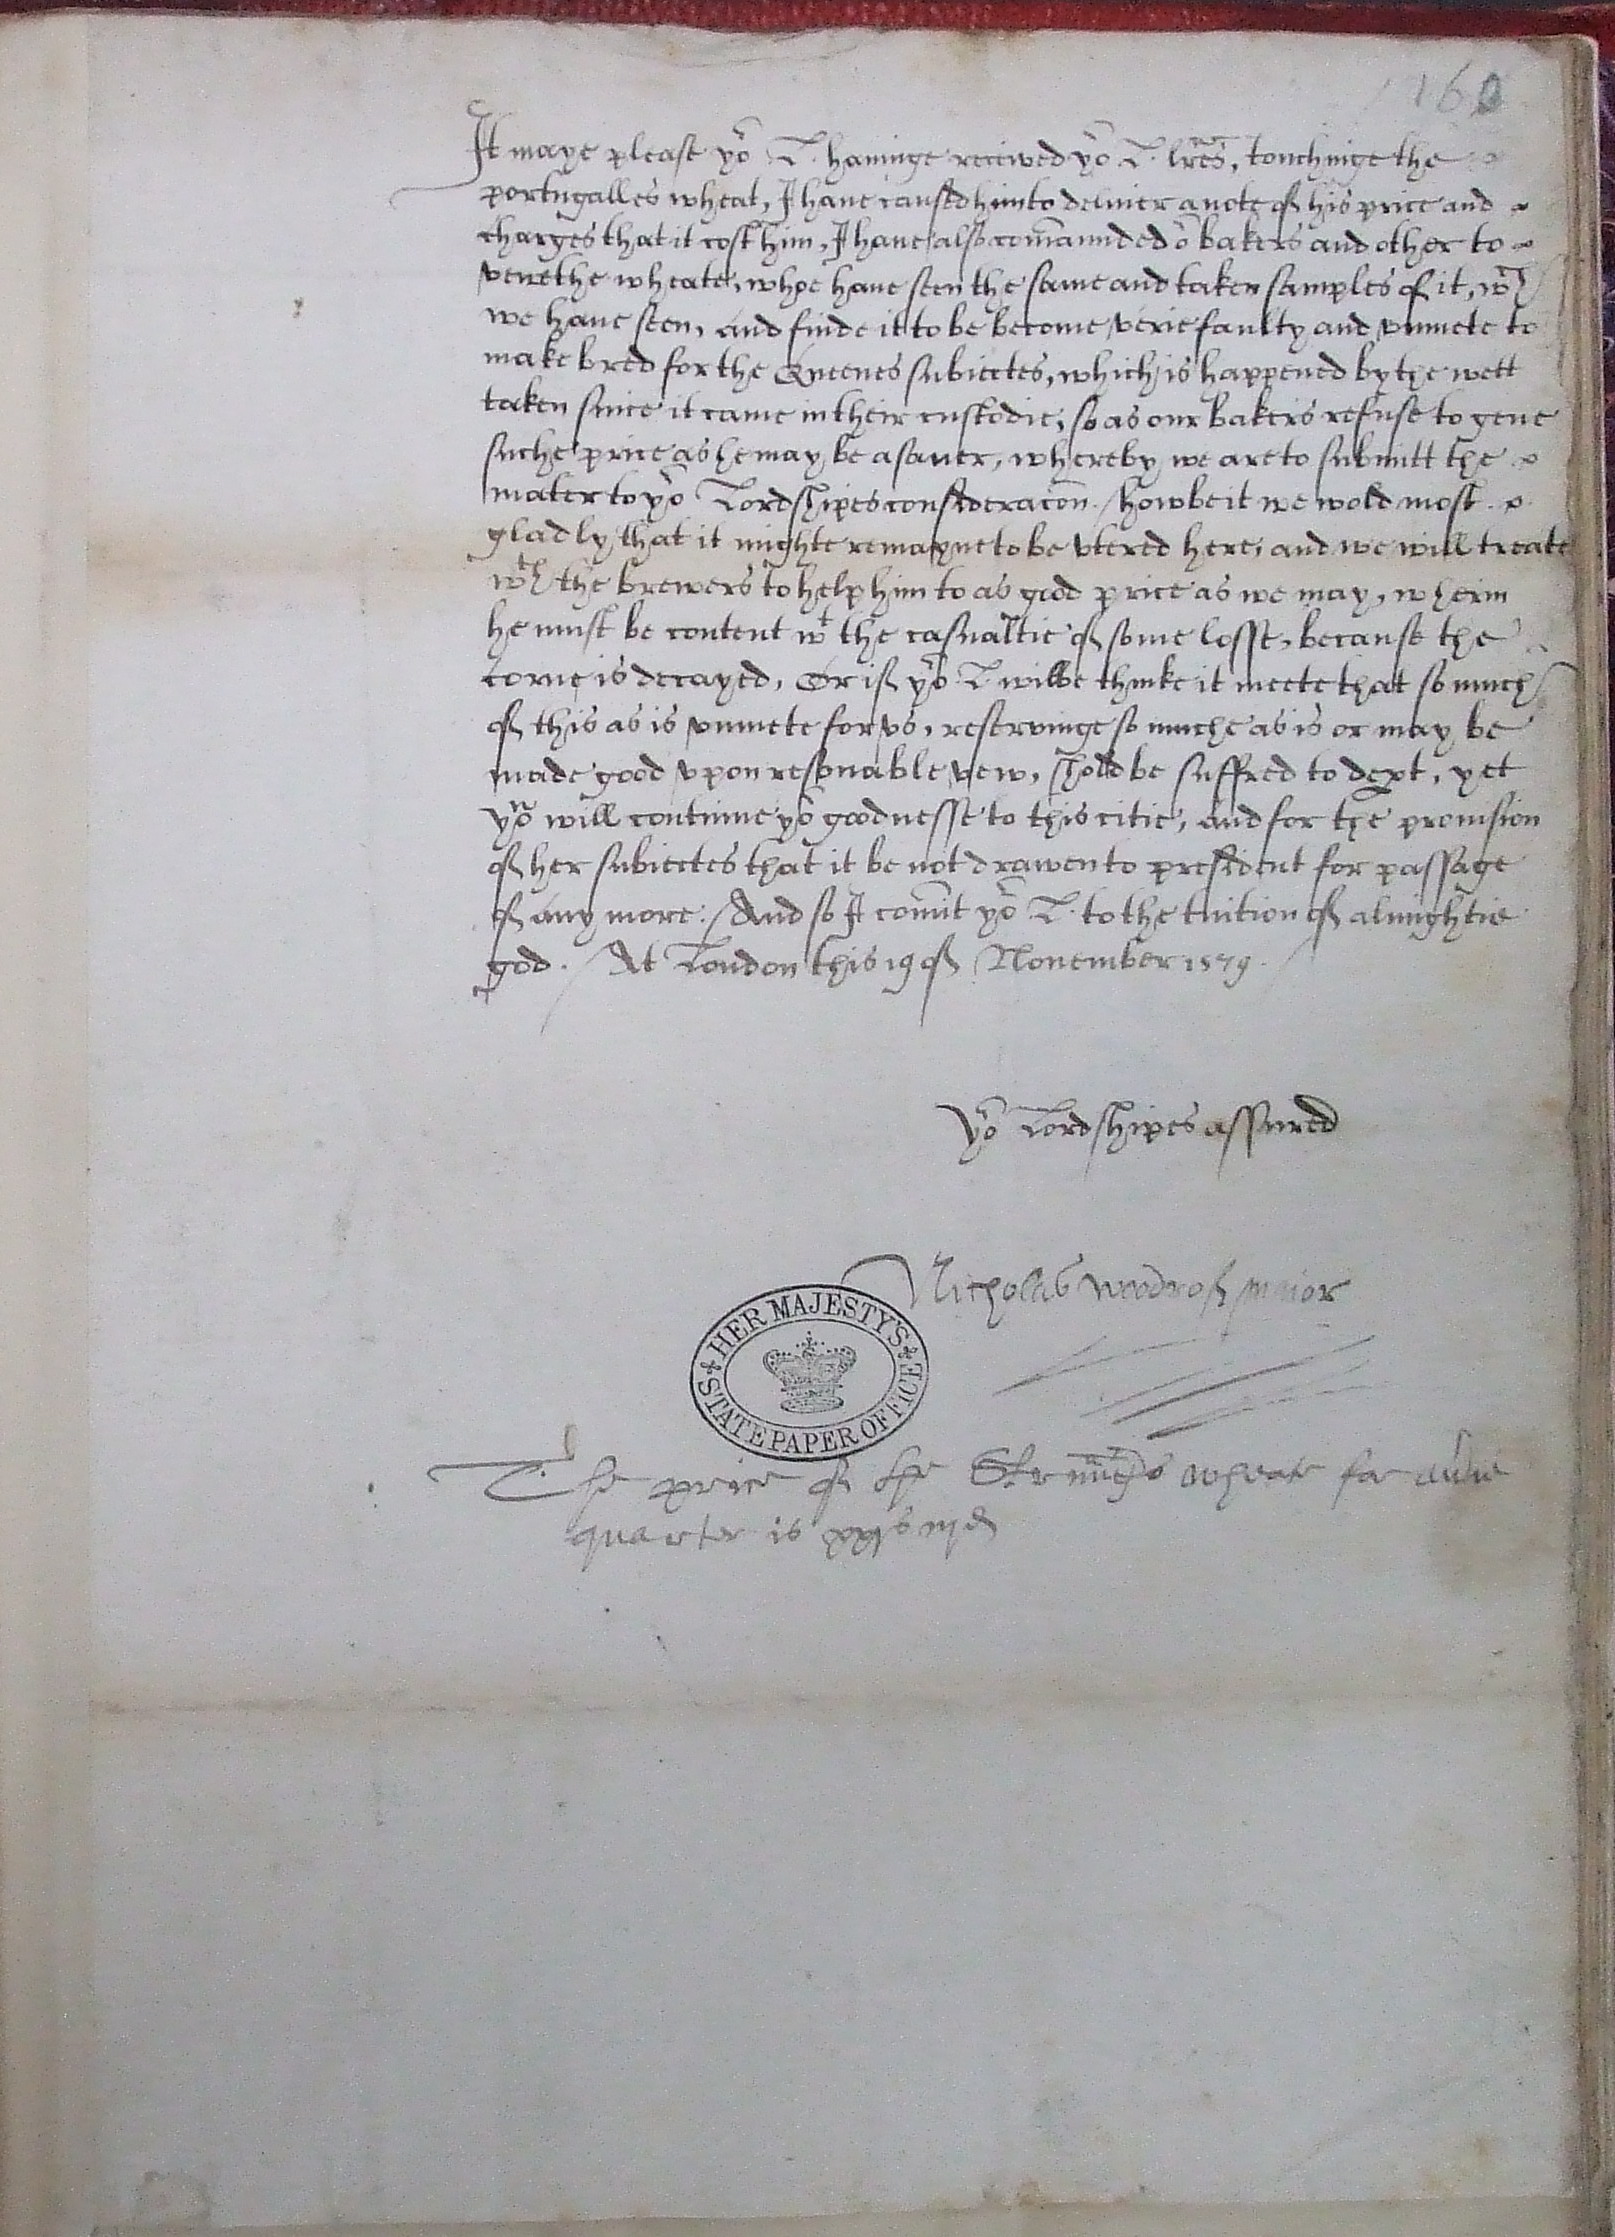 160
It maye please yor L. havinge received yor L. lres, touchinge the
portugalles wheat, I have caused him to deliver a note of his price and
charges that it cost him, I have also comaunded or bakers and other to
vewe the wheate, whoe have seen the same and taken samples of it, wch
we have seen, and finde it to be become verie faulty and unmete to
make bred for the Queenes subiectes, which is happened by the wett
taken since it came in their custodie, so as our bakers refuse to geve
suche price as he may be a saver, whereby we are to submitt the
mater to yor Lordshipes consideracon. Howbeit we wold most
gladly that it mighte remayne to be vtered here, and we will treate
wth the brewers to help him to as good price as we may, wherin
he must be content wt the casualtie of some losse, because the
corne is decayed, Or if yor L. will thinke it meete that so much
of this as is vnmete for vs, reservinge so muche as is or may be
made good vpon resonable vew, shold be suffred to dept, yet
you will continue yor goodnesse to this citie, and for the provision
of her subiectes that it be not drawen to president for passage
of any more. And so I comit yor L. to the tuition of almightie
god. At London this 19 of November 1579.
Yor Lordshipes assured
Nicholas Woodrof maior
HER MAJESTY'S STATE PAPER OFFICE
The price of the wheate for
quarter is